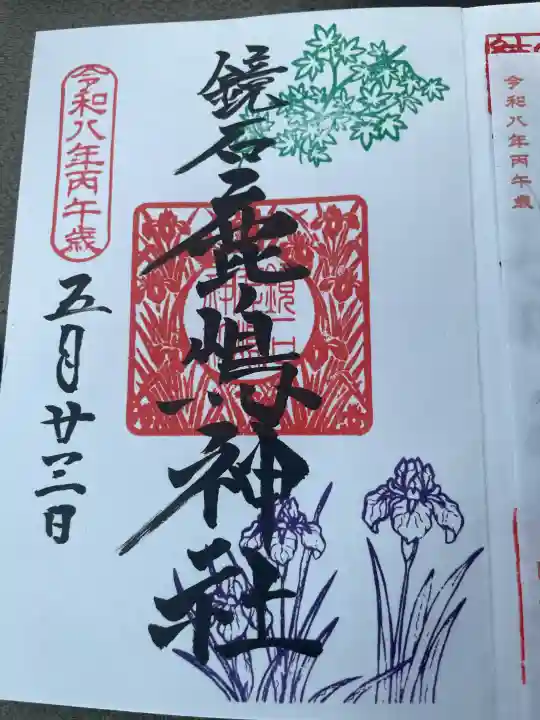 令和八年丙午歳
鏡石鹿嶋神社
令和八年丙午歳
五月廿三日